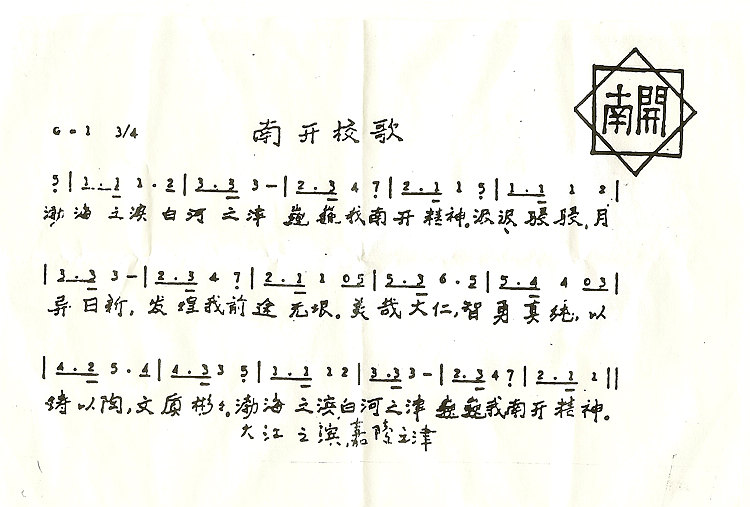 南開
G=1 3/4 南开校歌
5̣ | 1.1 1.2 | 3.3 3 - | 2.3 4 7̣ | 2.1 1 5̣ | 1.1 1 2 |
渤海之滨白河之津 巍巍我南开精神。汲汲骎骎,月
| 3.3 3 - | 2.3 4 7̣ | 2.1 1 05 | 5.3 6.5 | 5.4 4 03 |
异日新,发煌我前途无垠。美哉大仁,智勇真纯,以
| 4.2 5.4 | 4.3 3 5̣ | 1.1 1 2 | 3.3 3 - | 2.3 4 7̣ | 2.1 1 ||
铸以陶,文质彬々。渤海之滨白河之津 巍巍我南开精神。
大江之滨,嘉陵之津